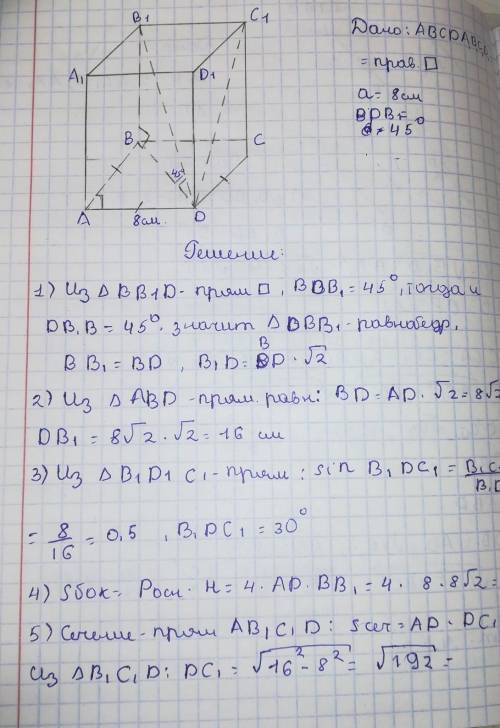 B₁
C₁
A₁
D₁
B
C
45°
A
8см.
D
Дано: ABCDA₁B₁C₁
= прав □
a = 8см
BDB₁=
= 45°
Решение:
1) Из △ BB1D - прям □, BDB₁ = 45°, тогда и
DB₁B = 45°. значит △ DBB₁ - равнобедр,
BB₁ = BD , B₁D = BD · √2
2) Из △ ABD - прям. равн: BD = AD · √2 = 8√2
DB₁ = 8√2 · √2 = 16 см
3) Из △ B₁D1 C₁ - прям : sin B₁DC₁ = B₁C₁/B₁D
= 8/16 = 0,5 , B₁DC₁ = 30°
4) Sбок = Pосн · H = 4 · AD · BB₁ = 4 · 8 · 8√2 =
5) Сечение - прям AB₁C₁D : Sсеч = AD · DC₁
Из △ B₁C₁D : DC₁ = √16² - 8² = √192 =